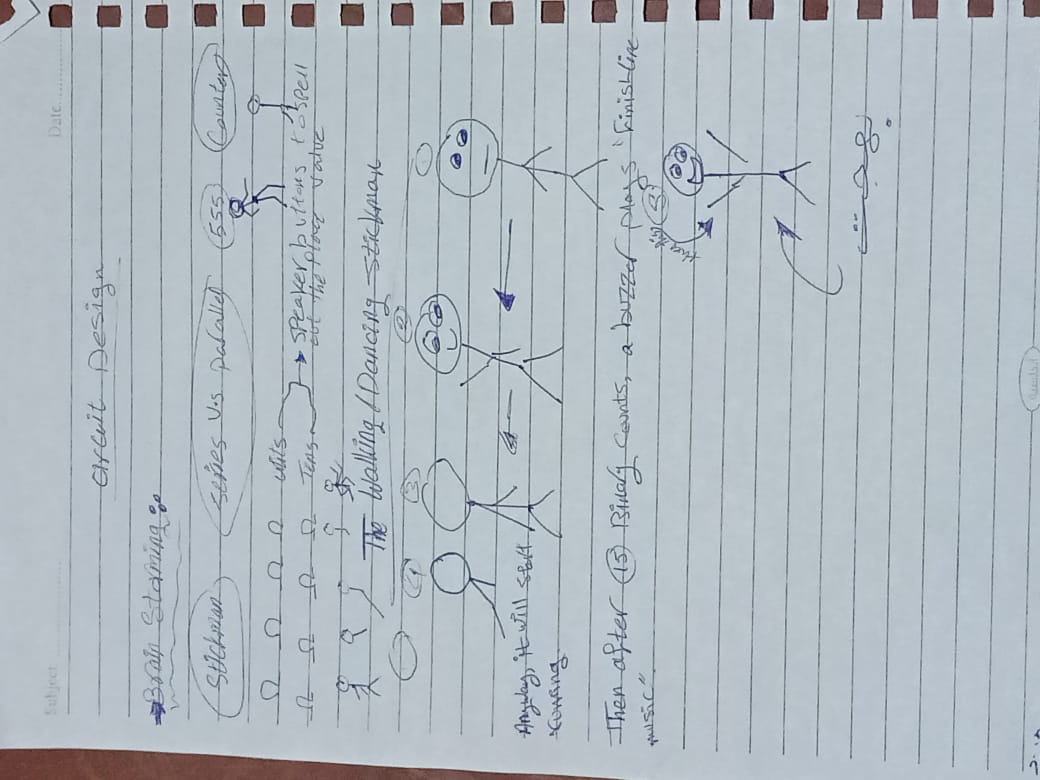 Subject
Date
Circuit Design
Brain Storming:
Stickman Series V.s parallel 555 Counter
Units
Tens
speaker buttons to spell
out the place value
The Walking & Dancing Stickman
① ② ③ ④
Anyway, it will start
Then after ⑮ Binary counts, a buzzer plays "finish line
music"